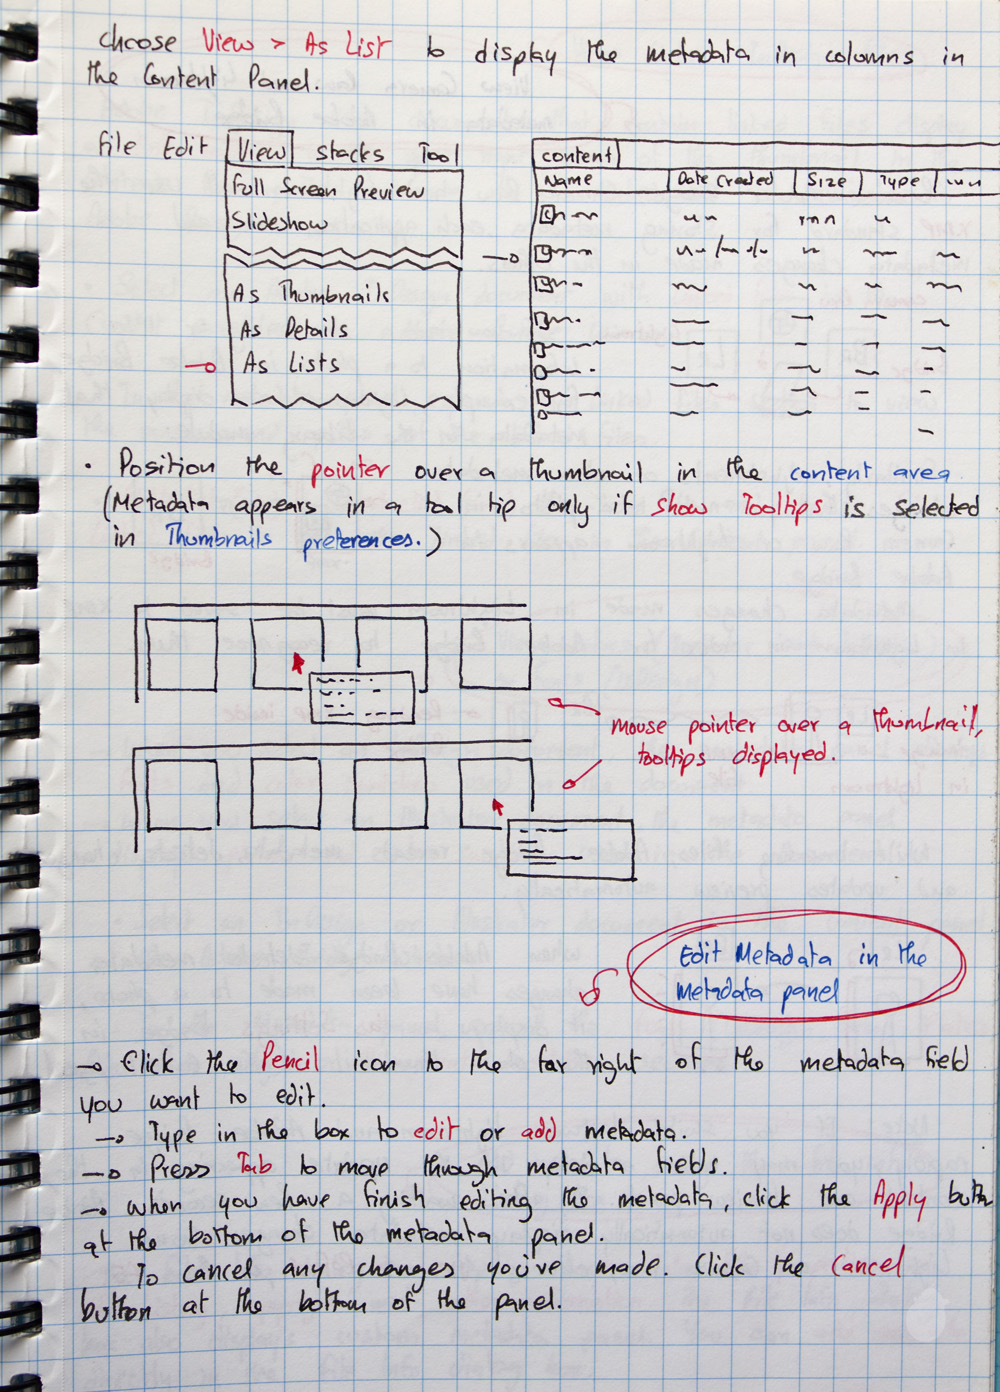 choose View > As List to display the metadata in columns in
the Content Panel.
File Edit View Stacks Tool
Full Screen Preview
Slideshow
As Thumbnails
As Details
As Lists
content
Name Date Created Size Type
· Position the pointer over a thumbnail in the content area
(Metadata appears in a tool tip only if show Tooltips is selected
in Thumbnails preferences.)
mouse pointer over a thumbnail,
tooltips displayed.
Edit Metadata in the
metadata panel
→ Click the Pencil icon to the far right of the metadata field
you want to edit.
→ Type in the box to edit or add metadata.
→ Press Tab to move through metadata fields.
→ when you have finish editing the metadata, click the Apply button
at the bottom of the metadata panel.
To cancel any changes you've made. Click the Cancel
button at the bottom of the panel.